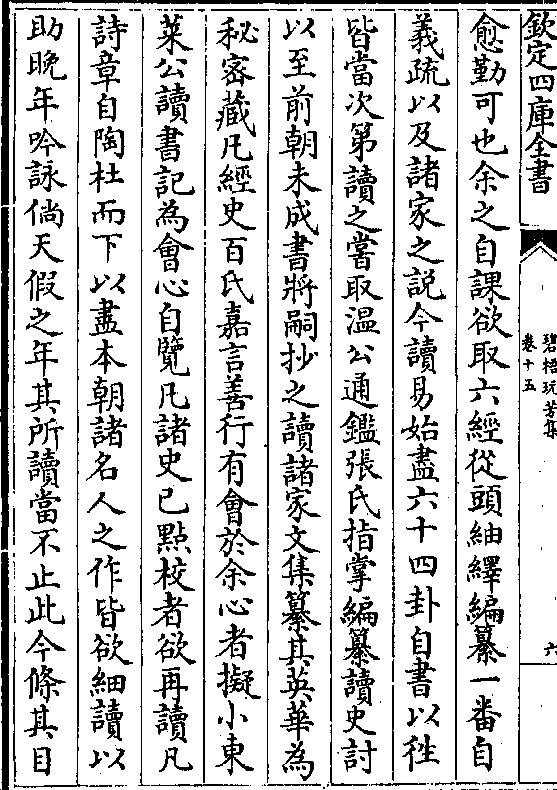 欽定四庫全書
碧梧玩芳集
卷十五
六
愈勤可也余之自課欲取六經從頭紬繹編纂一番自
義疏以及諸家之説今讀易始盡六十四卦自書以徃
皆當次第讀之嘗取温公通鑑張氏指掌編纂讀史討
以至前朝未成書將嗣抄之讀諸家文集纂其英華為
秘宻藏凡經史百氏嘉言善行有會於余心者擬小東
萊公讀書記為會心自覽凡諸史已點校者欲再讀凡
詩章自陶杜而下以盡本朝諸名人之作皆欲細讀以
助晩年吟詠倘天假之年其所讀當不止此今條其目